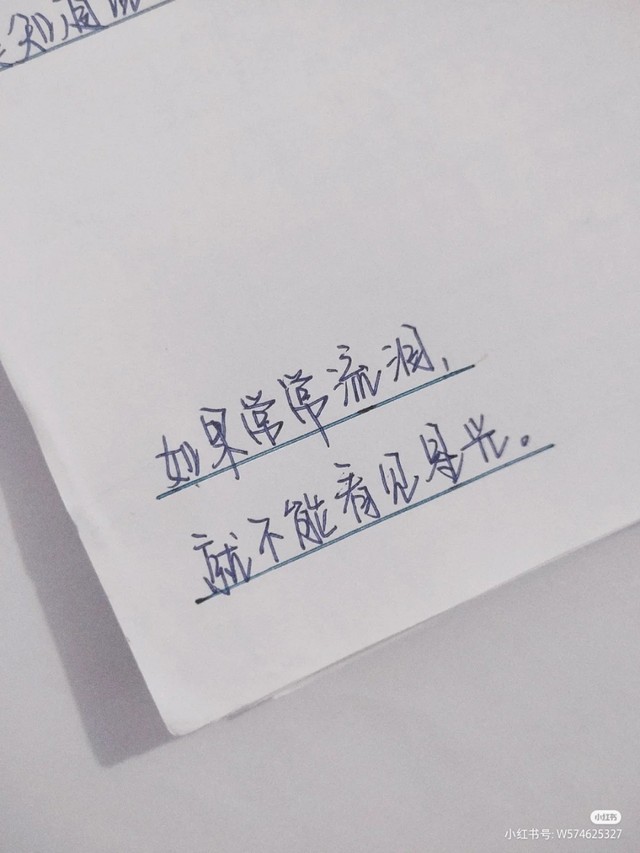 如果常常流泪,
就不能看见星光。
小红书
小红书号: W574625327